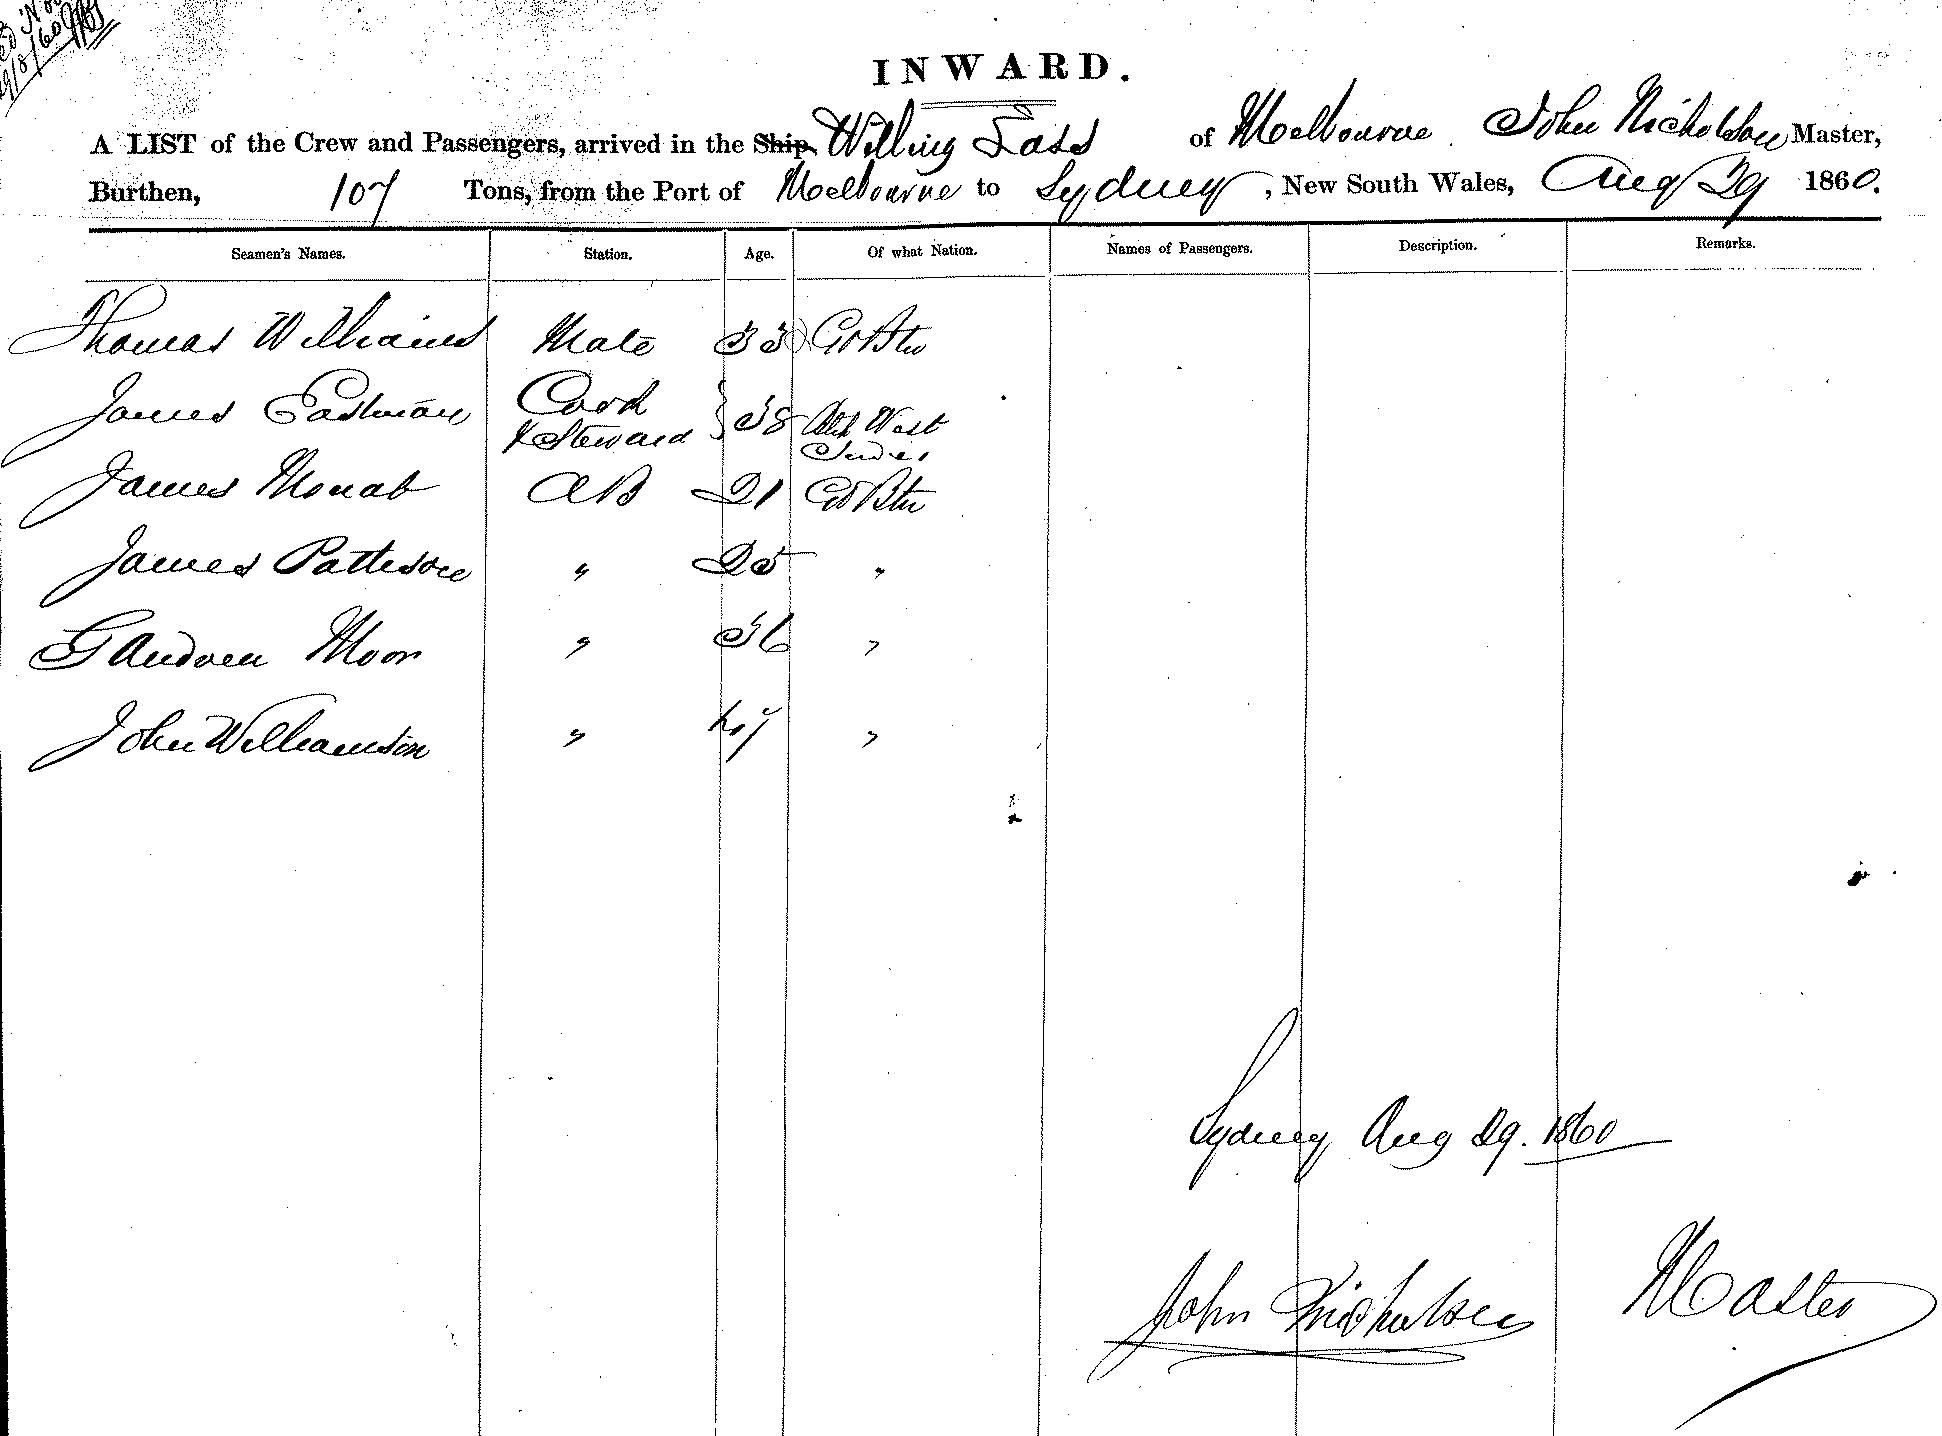 INWARD.
A LIST of the Crew and Passengers, arrived in the Ship Willing Lass of Melbourne John Nicholson Master,
Burthen, 107 Tons, from the Port of Melbourne to Sydney, New South Wales, Aug 29 1860.
Seamen's Names. Station. Age. Of what Nation. Names of Passengers. Description. Remarks.
Thomas Williams Mate 33 Gt Btn
James Eastman Cook 38 West
& Steward Indies
James Monab AB 21 Gt Btn
James Pattison " 25 "
G Andrew Moor " 36 "
John Williamson " "
Sydney Aug 29. 1860
John Nicholson Master